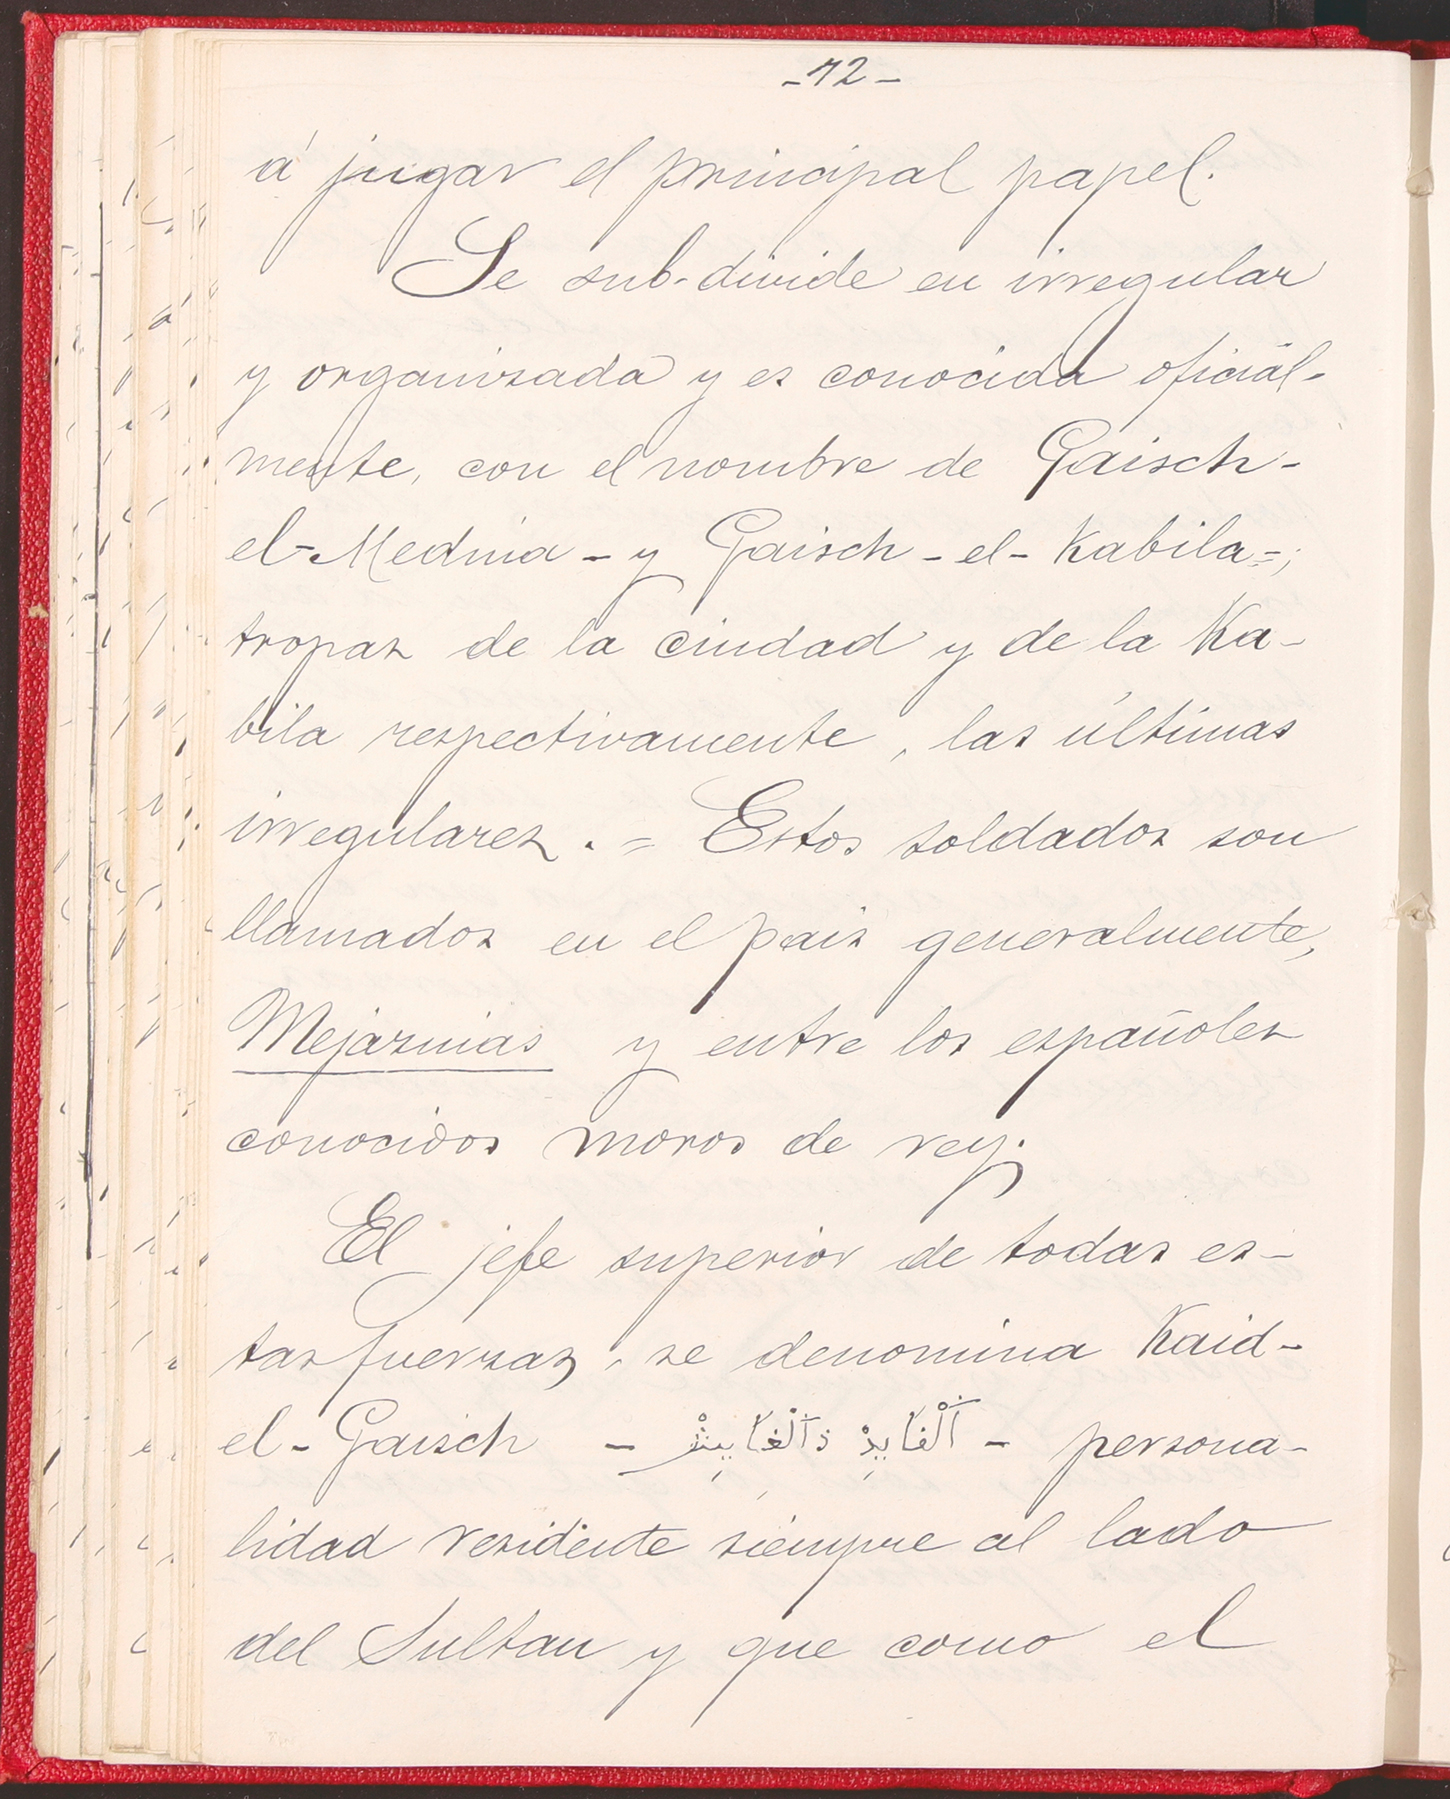 -12-
á jugar el principal papel.
Se sub-divide en irregular
y organisada y es conocida oficial-
mente, con el nombre de Gaisch-
el-Medina - y Gaisch-el-Kabila=;
tropas de la ciudad y de la Ka-
bila respectivamente, las últimas
irregulares. = Estos soldados son
llamados en el pais generalmente,
Mejaznias y entre los españoles
conocidos moros de rey.
El jefe superior de todas es-
tas fuerzas, se denomina Kaid-
el-Gaisch - - persona-
lidad residente siempre al lado
del Sultan y que como el